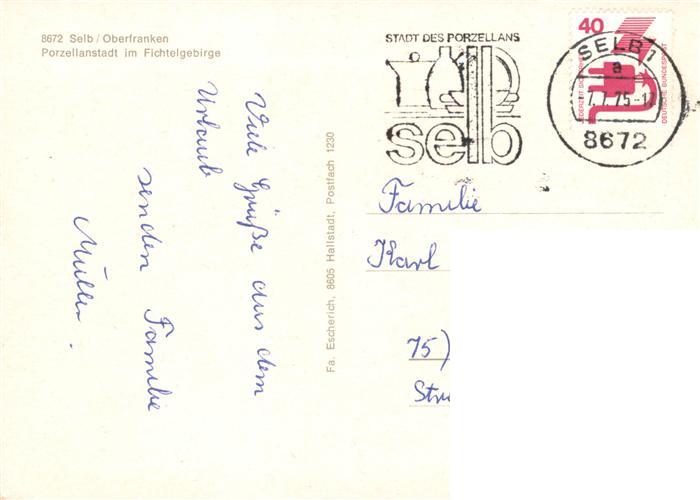 8672 Selb / Oberfranken
Porzellanstadt im Fichtelgebirge
Viele Grüße aus dem
Urlaub
senden Familie
Müller.
Fa. Escherich, 8605 Hallstadt, Postfach 1230
STADT DES PORZELLANS
selb
SELB 1
a
7.7.75-17
8672
40
JEDERZEIT SICHERHEIT
DEUTSCHE BUNDESPOST
Familie
Karl
75)
Stru